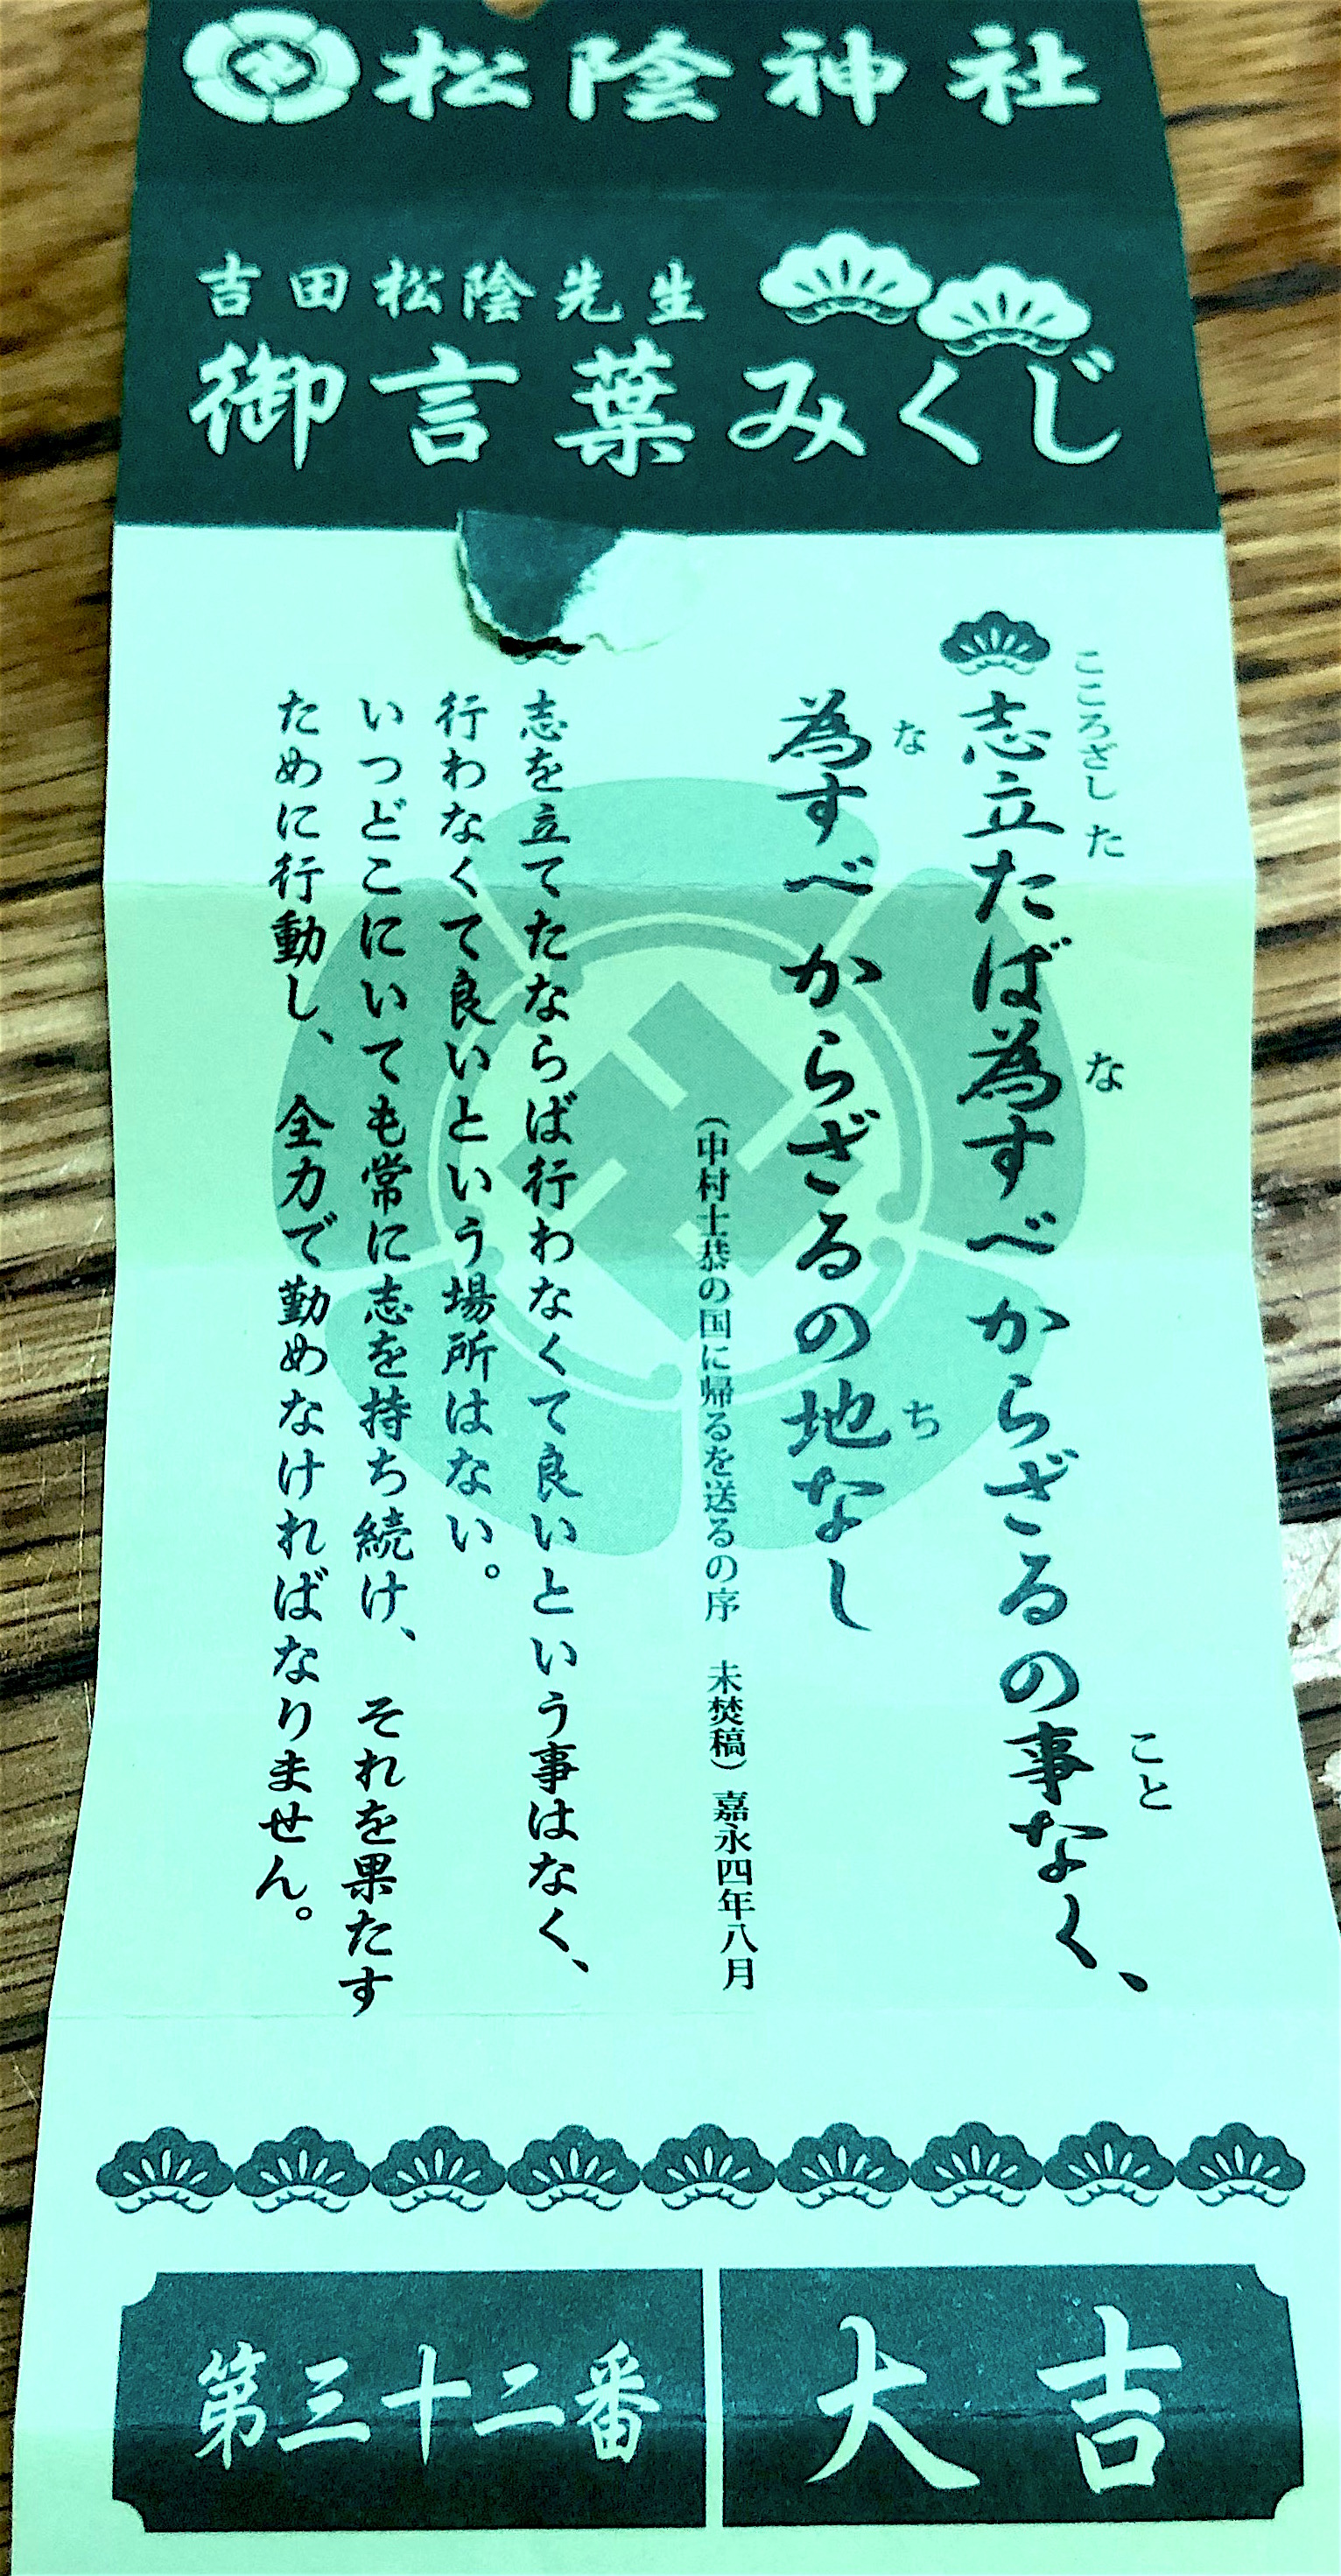 松陰神社
吉田松陰先生
御言葉みくじ
こころざし た な こと
志立たば為すべからざるの事なく、
な ち
為すべからざるの地なし
(中村士恭の国に帰るを送るの序 未焚稿)嘉永四年八月
志を立てたならば行わなくて良いという事はなく、
行わなくて良いという場所はない。
いつどこにいても常に志を持ち続け、それを果たす
ために行動し、全力で勤めなければなりません。
第三十二番
大吉